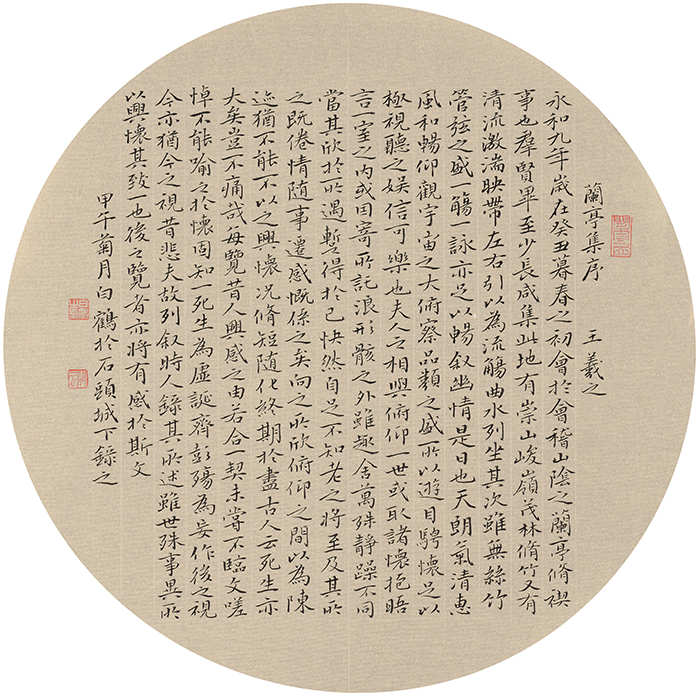 蘭亭集序 王羲之
永和九年歲在癸丑暮春之初會於會稽山陰之蘭亭脩禊
事也羣賢畢至少長咸集此地有崇山峻嶺茂林脩竹又有
清流激湍映帶左右引以為流觴曲水列坐其次雖無絲竹
管弦之盛一觴一詠亦足以暢叙幽情是日也天朗氣清惠
風和暢仰觀宇宙之大俯察品類之盛所以遊目騁懷足以
極視聽之娛信可樂也夫人之相與俯仰一世或取諸懷抱晤
言一室之內或因寄所託浪形骸之外雖趣舍萬殊靜躁不同
當其欣於所遇暫得於己快然自足不知老之將至及其所
之既倦情隨事遷感慨係之矣向之所欣俯仰之間以為陳
迹猶不能不以之興懷況脩短隨化終期於盡古人云死生亦
大矣豈不痛哉每覽昔人興感之由若合一契未嘗不臨文嗟
悼不能喻之於懷固知一死生為虛誕齊彭殤為妄作後之視
今亦猶今之視昔悲夫故列叙時人錄其所述雖世殊事異所
以興懷其致一也後之覽者亦將有感於斯文
甲午菊月白鶴於石頭城下錄之